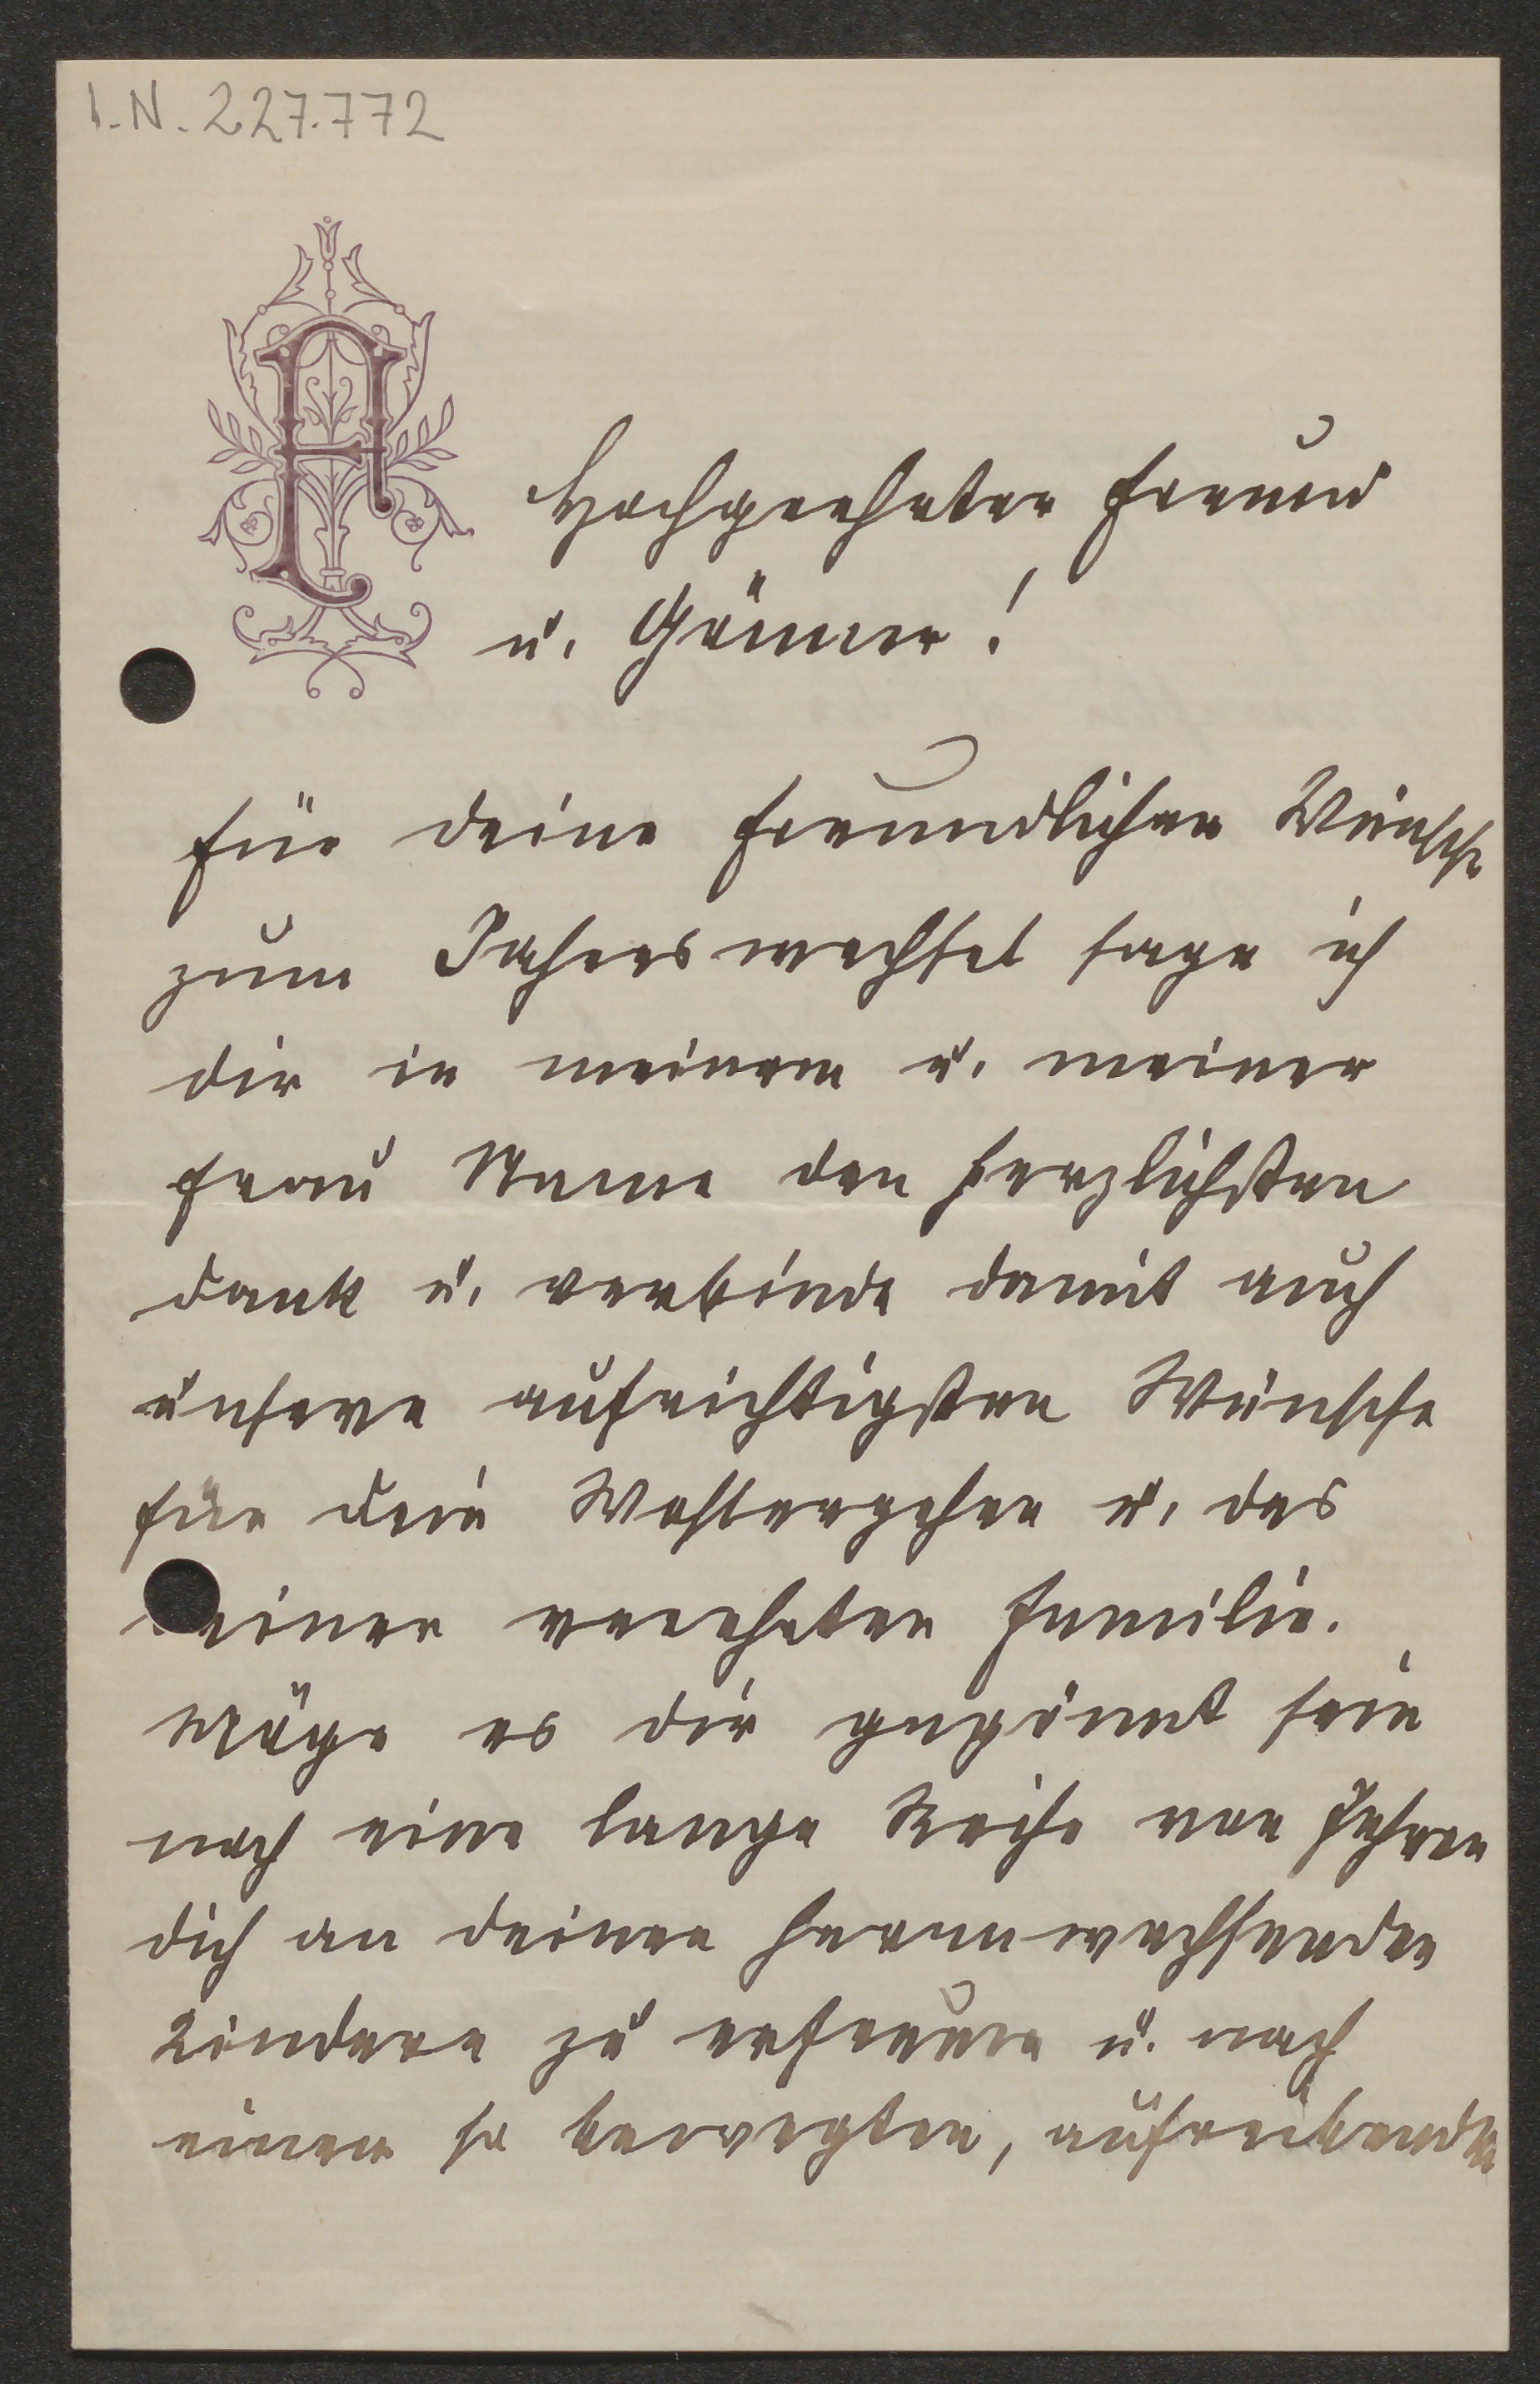 I.N. 227.772
A
Hochgeehrter Freund
u. Gönner!
Für deine freundlichen Wünsche
zum Jahreswechsel sage ich
dir in meinem u. meiner
Frau Name den herzlichsten
Dank u. verbinde damit auch
unsere aufrichtigsten Wünsche
für dein Wohlergehen u. das
einer verehrten Familie.
Möge es dir gegönnt sein
noch eine lange Reihe von Jahren
dich an deinen heranwachsenden
Kindern zu erfreuen u. nach
einem so bewegten, aufreibenden